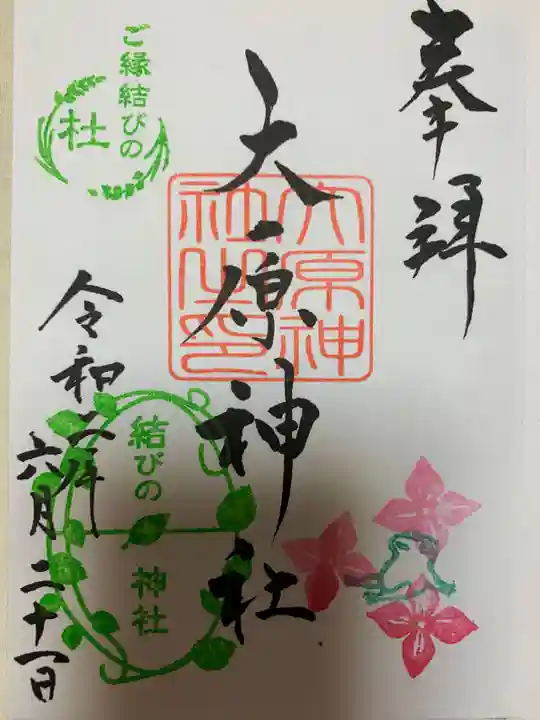 奉拝
大原神社
大原神
社之印
ご縁結びの
杜
令和二年
六月二十一日
結びの
神社